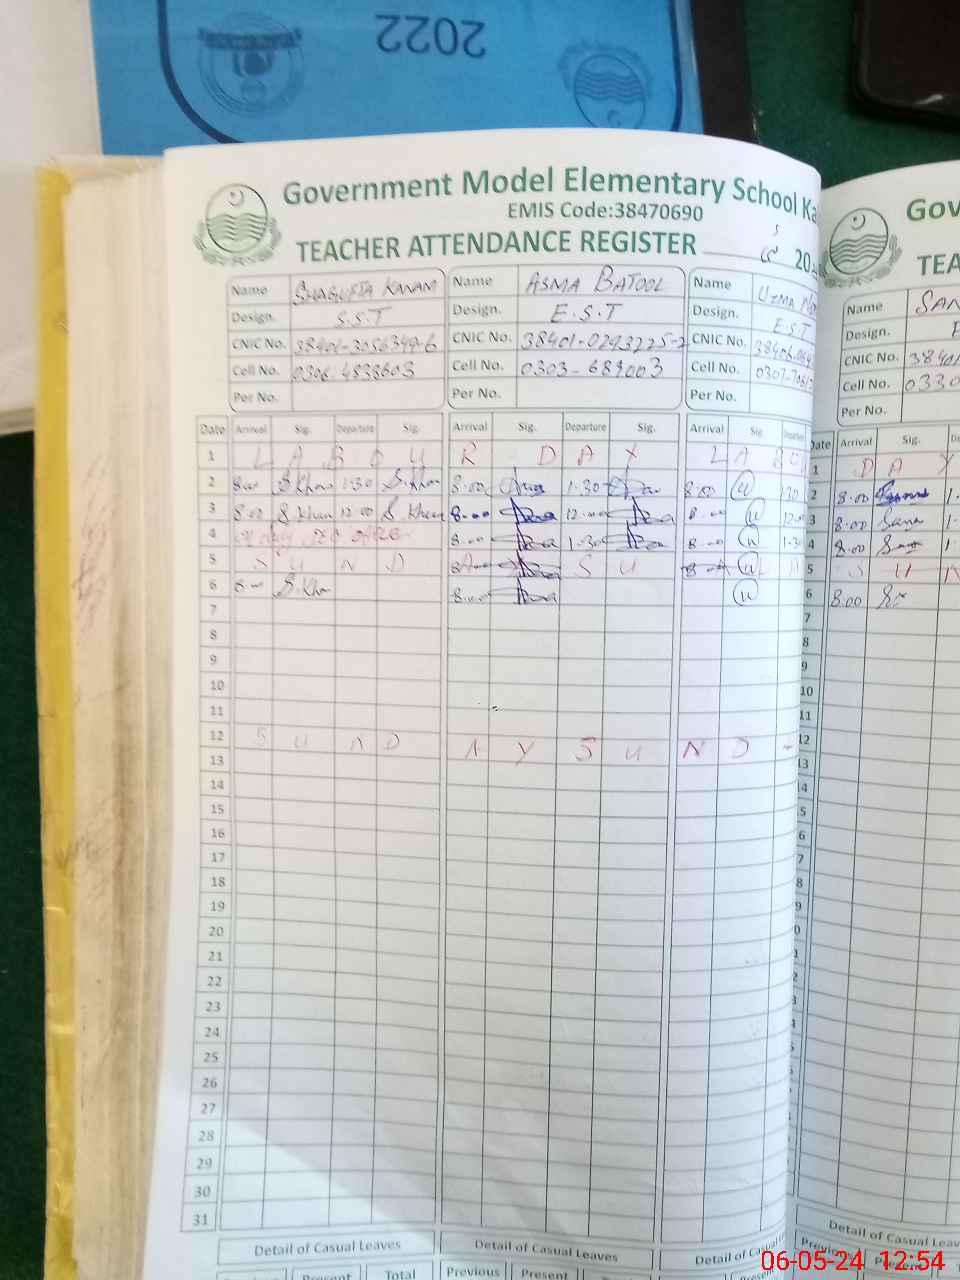 2022
Government Model Elementary School Ka
EMIS Code:38470690
TEACHER ATTENDANCE REGISTER 5 20
Name SHAGUFTA KANAM Name ASMA BATOOL Name UZMA
Design. S.S.T Design. E.S.T Design. E.S.T
CNIC No. 38401-3056349-6 CNIC No. 38401-0293225-2 CNIC No.
Cell No. 0306-4833603 Cell No. 0303-689003 Cell No.
Per No. Per No. Per No.
Date Arrival Sig. Departure Sig. Arrival Sig. Departure Sig. Arrival Sig. Departure
1 L A B O U R D A Y L A B O U
2 8.00 S.Khan 1.30 S.Khan 8.00 1.30 8.00 1.30
3 8.00 S.Khan 12.00 S.Khan 8.00 12.00 8.00 12.00
4 8.00 1.30 8.00 1.30
5 S U N D A S U
6 8.00 S.Khan 8.00
7
8
9
10
11
12 S U N D A Y S U N D
13
14
15
16
17
18
19
20
21
22
23
24
25
26
27
28
29
30
31
Detail of Casual Leaves Detail of Casual Leaves Detail of Casual
Present Total Previous Present
Gov
TEA
Name SAN
Design. E
CNIC No. 3840
Cell No. 0330
Per No.
Date Arrival Sig.
1 D A Y
2 8.00
3 8.00 Sana
4 8.00
5 S U N
6 8.00
7
8
9
10
11
12
13
Detail of Casual Leav
Previous Present
06-05-24 12:54